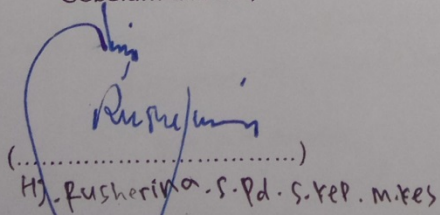 (................................)
Hj. Rusherina. S.Pd. S.Kep. M.Kes